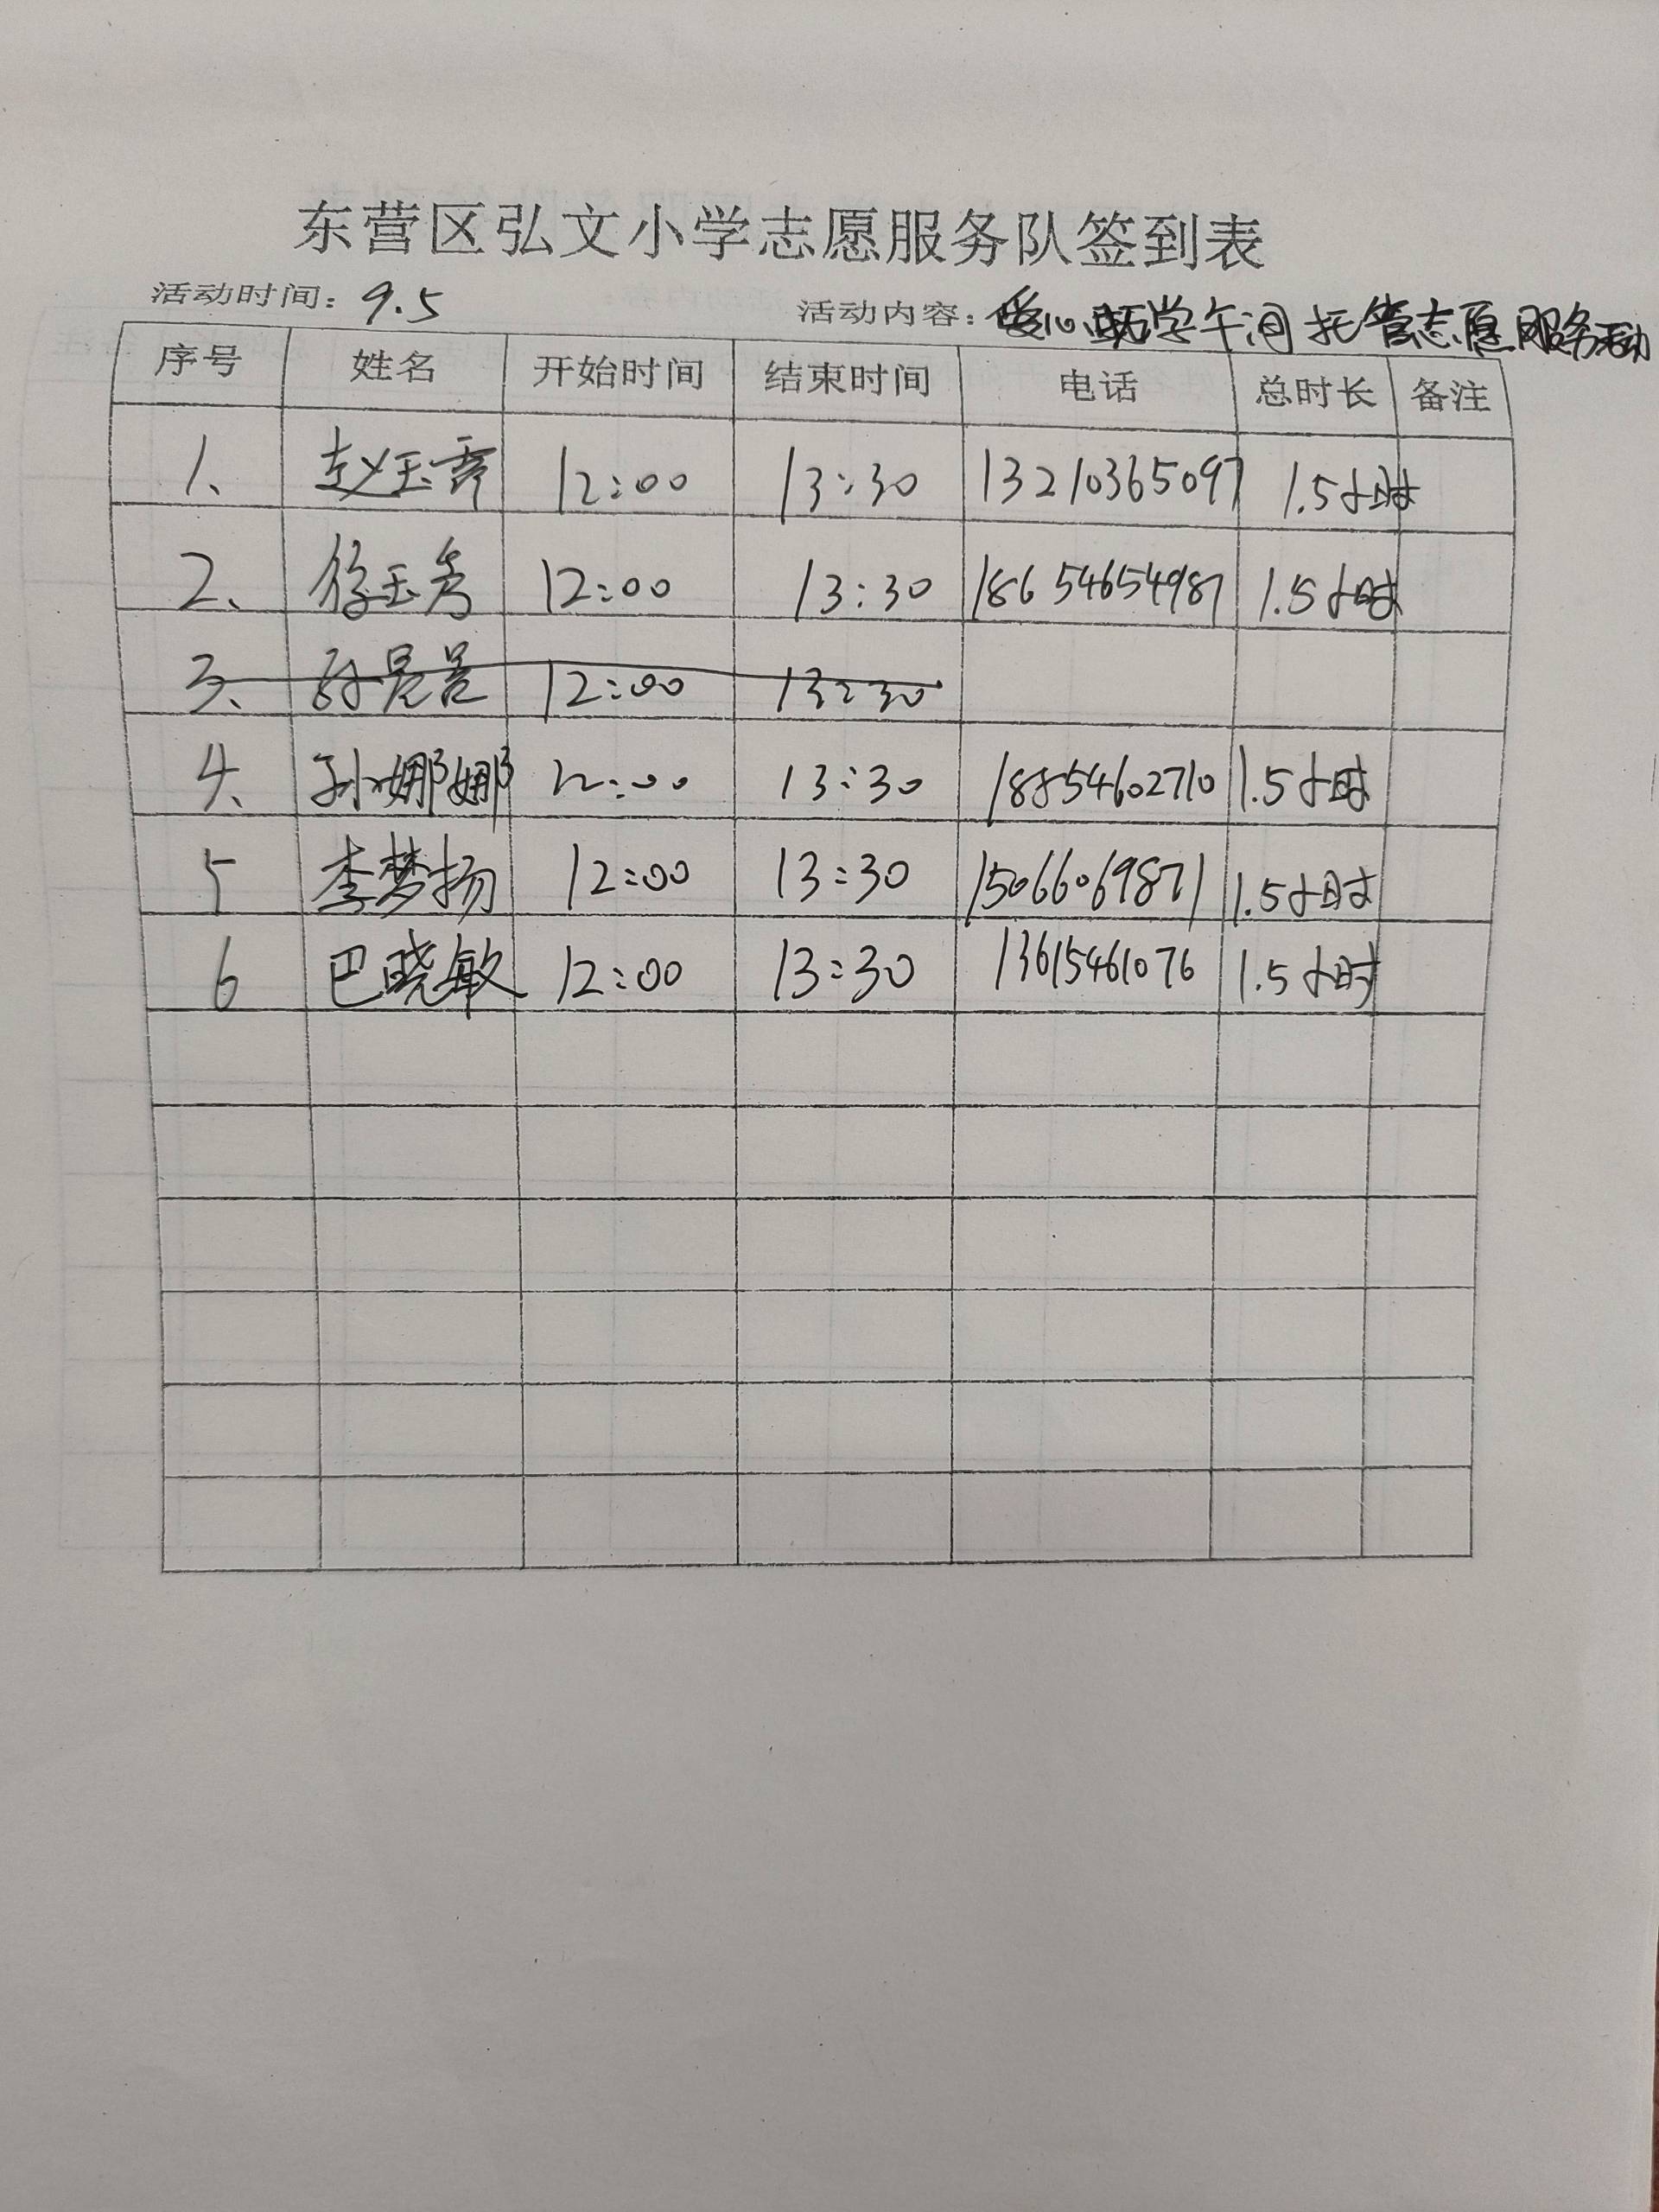 东营区弘文小学志愿服务队签到表
活动时间：9.5 活动内容：爱心助学午间托管志愿服务活动
序号 姓名 开始时间 结束时间 电话 总时长 备注
1、 赵玉霞 12:00 13:30 13210365097 1.5小时
2、 徐玉秀 12:00 13:30 18654654987 1.5小时
3、 12:00 13:30
4、 孙娜娜 12:00 13:30 18854602710 1.5小时
5 李梦扬 12:00 13:30 15066069871 1.5小时
6 巴晓敏 12:00 13:30 13615461076 1.5小时